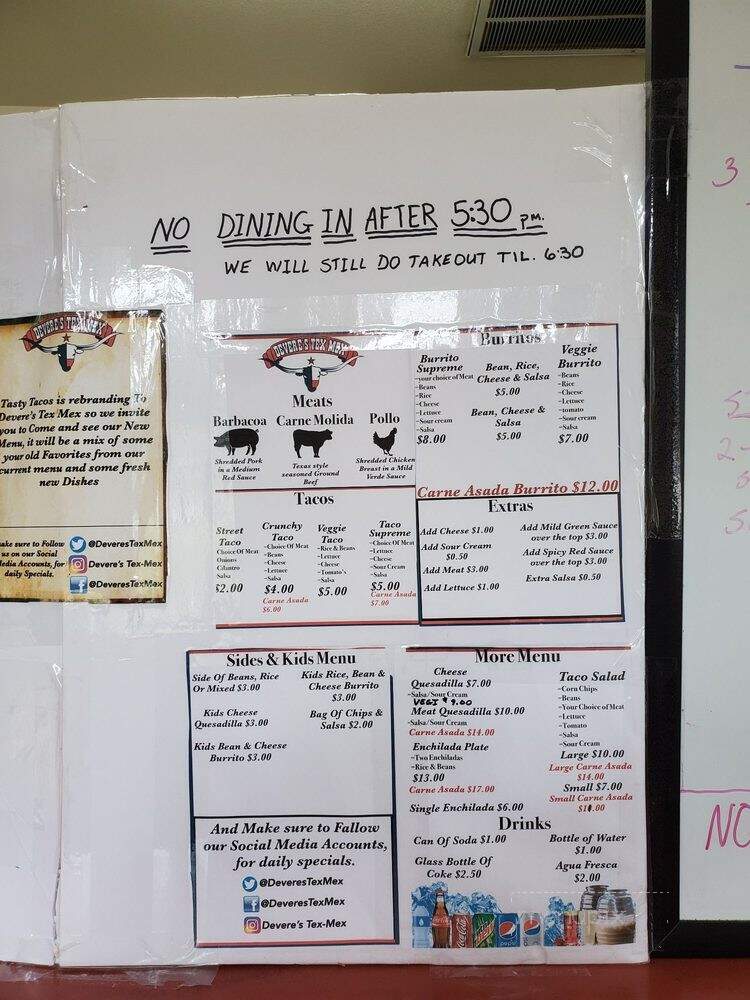 NO DINING IN AFTER 5:30 PM.
WE WILL STILL DO TAKEOUT TIL. 6:30
DEVERE'S TEX MEX
Tasty Tacos is rebranding To
Devere's Tex Mex so we invite
you to Come and see our New
Menu, it will be a mix of some
your old Favorites from our
current menu and some fresh
new Dishes
ake sure to Follow
us on our Social
Media Accounts, for
daily Specials.
@DeveresTexMex
Devere's Tex-Mex
@DeveresTexMex
DEVERE'S TEX MEX
Meats
Barbacoa
Shredded Pork
in a Medium
Red Sauce
Carne Molida
Texas style
seasoned Ground
Beef
Pollo
Shredded Chicken
Breast in a Mild
Verde Sauce
Tacos
Street
Taco
Choice Of Meat
Onions
Cilantro
Salsa
$2.00
Crunchy
Taco
-Choice Of Meat
-Beans
-Cheese
-Lettuce
-Salsa
$4.00
Carne Asada
$6.00
Veggie
Taco
-Rice & Beans
-Lettuce
-Cheese
-Tomato's
-Salsa
$5.00
Taco
Supreme
-Choice Of Meat
-Lettuce
-Cheese
-Sour Cream
-Salsa
$5.00
Carne Asada
$7.00
Burritos
Burrito
Supreme
-your choice of Meat
-Beans
-Rice
-Cheese
-Lettuce
-Sour cream
-Salsa
$8.00
Bean, Rice,
Cheese & Salsa
$5.00
Bean, Cheese &
Salsa
$5.00
Veggie
Burrito
-Beans
-Rice
-Cheese
-Lettuce
-tomato
-Sour cream
-Salsa
$7.00
Carne Asada Burrito $12.00
Extras
Add Cheese $1.00
Add Sour Cream
$0.50
Add Meat $3.00
Add Lettuce $1.00
Add Mild Green Sauce
over the top $3.00
Add Spicy Red Sauce
over the top $3.00
Extra Salsa $0.50
Sides & Kids Menu
Side Of Beans, Rice
Or Mixed $3.00
Kids Cheese
Quesadilla $3.00
Kids Bean & Cheese
Burrito $3.00
Kids Rice, Bean &
Cheese Burrito
$3.00
Bag Of Chips &
Salsa $2.00
And Make sure to Fallow
our Social Media Accounts,
for daily specials.
@DeveresTexMex
@DeveresTexMex
Devere's Tex-Mex
More Menu
Cheese
Quesadilla $7.00
-Salsa/Sour Cream
VEGI $9.00
Meat Quesadilla $10.00
-Salsa/Sour Cream
Carne Asada $14.00
Enchilada Plate
-Two Enchiladas
-Rice & Beans
$13.00
Carne Asada $17.00
Single Enchilada $6.00
Taco Salad
-Corn Chips
-Beans
-Your Choice of Meat
-Lettuce
-Tomato
-Salsa
-Sour Cream
Large $10.00
Large Carne Asada
$14.00
Small $7.00
Small Carne Asada
Drinks
Can Of Soda $1.00
Glass Bottle Of
Coke $2.50
Bottle of Water
$1.00
Agua Fresca
$2.00
3
NO